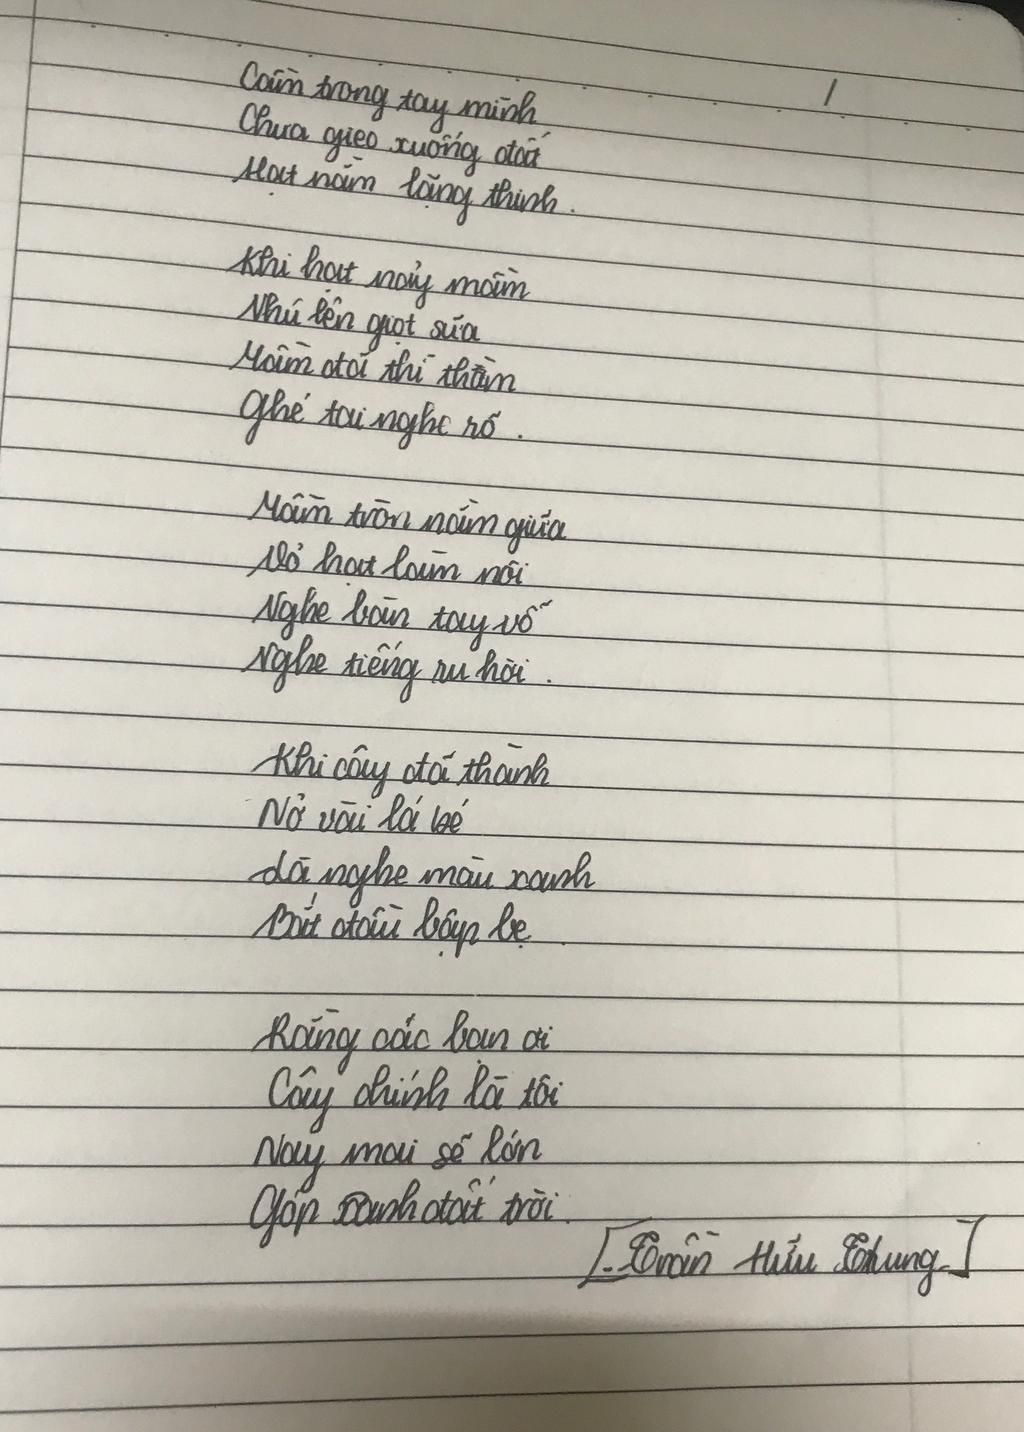 Cầm trong tay mình
Chưa gieo xuống đất
Hạt nằm lặng thinh.
Khi hạt nảy mầm
Nhú lên giọt sữa
Mầm đã thì thầm
Ghé tai nghe rõ.
Mầm tròn nằm giữa
Vỏ hạt làm nôi
Nghe bàn tay vỗ
Nghe tiếng ru hời.
Khi cây đã thành
Nở vài lá bé
Là nghe màu xanh
Bắt đầu bập bẹ
Rằng các bạn ơi
Cây chính là tôi
Nay mai sẽ lớn
Góp xanh đất trời.
[Trần Hữu Thung]